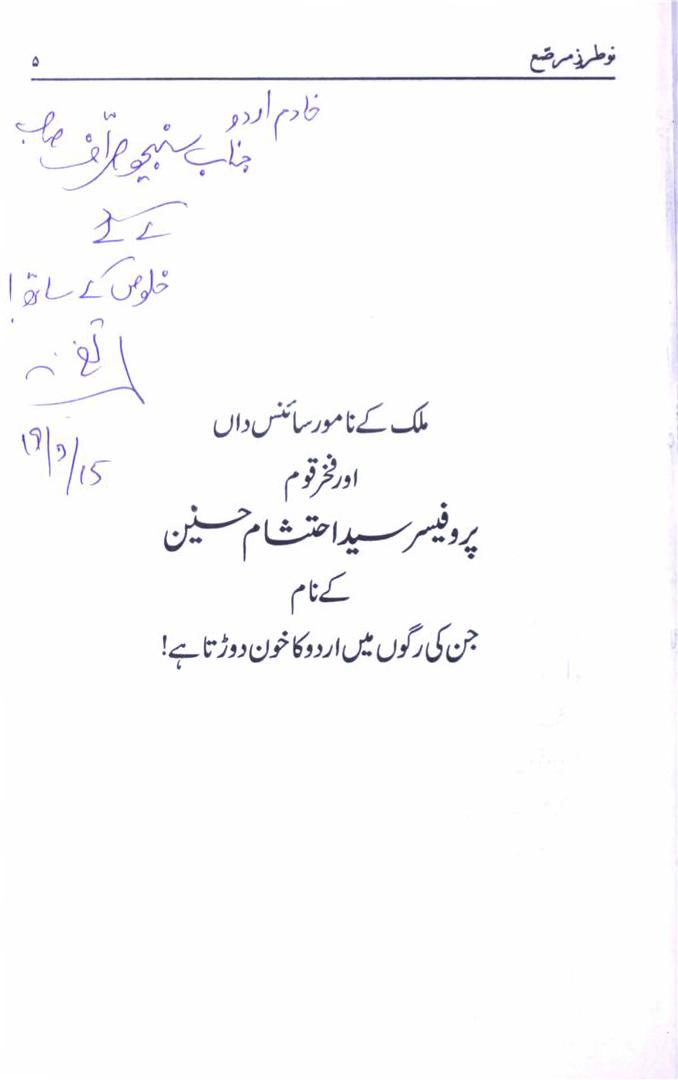 نوطرزِ مرصّع ۵
خادم اردو
جناب سنجیو صراف صاحب
کے لئے
خلوص کے ساتھ!
19/9/15
ملک کے نامور سائنس داں
اور فخرِ قوم
پروفیسر سید احتشام حسنین
کے نام
جن کی رگوں میں اردو کا خون دوڑتا ہے!